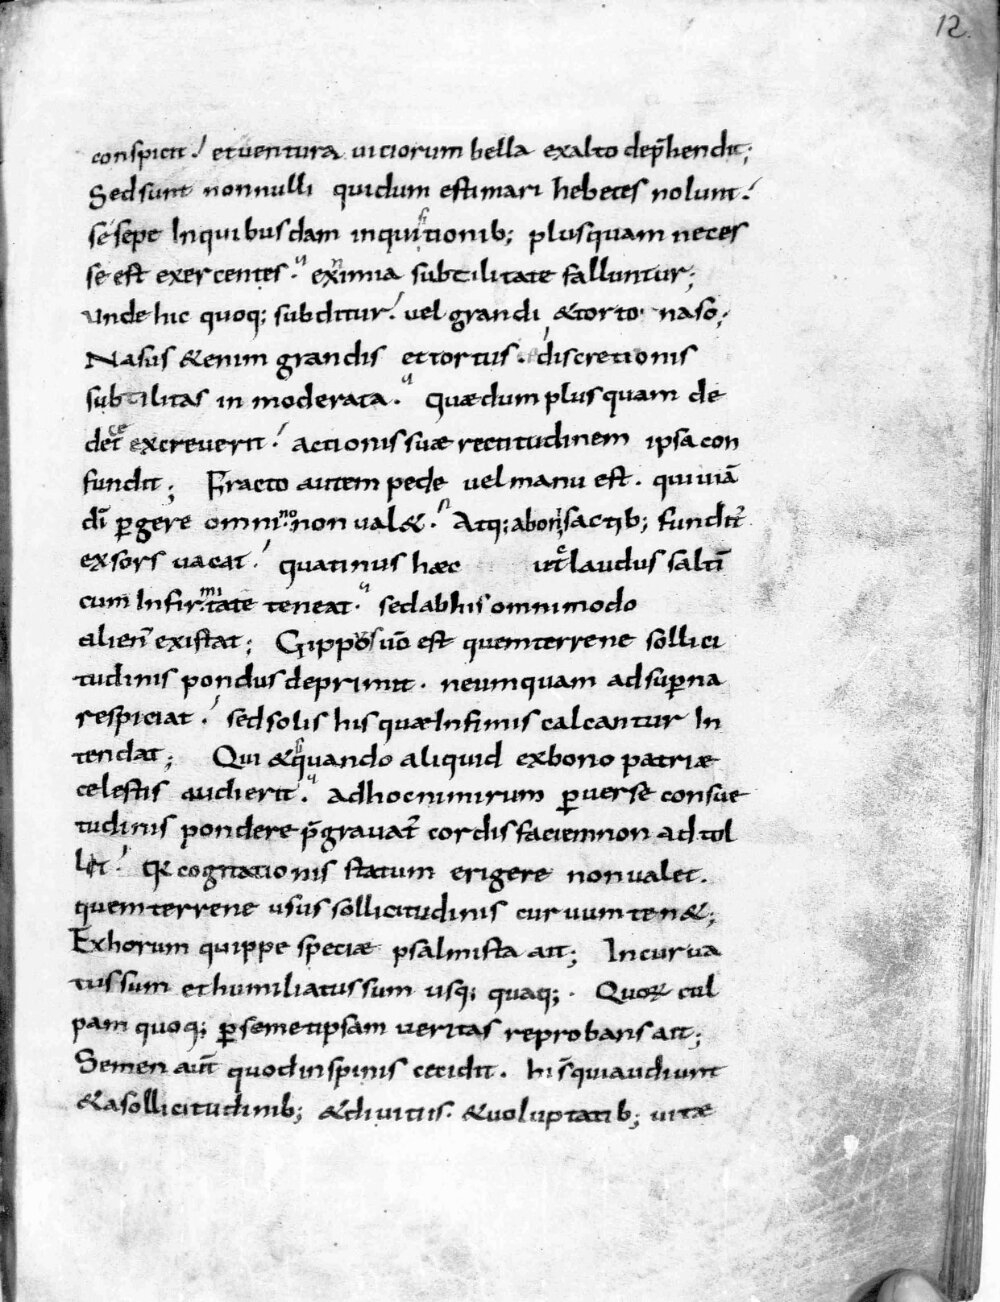 12.
conspicit! et ventura viciorum bella ex alto dep̄hendit;
Sed sunt nonnulli qui dum estimari hebetes nolunt!
se sepe In quibusdam inquisitionib; plus quam neces
se est exercentes. eximia subtilitate falluntur;
unde hic quoq; subditur! vel grandi & torto naso;
Nasus & enim grandis et tortus. discretionis
subtilitas inmoderata. Quæ dum plus quam de
decet excreverit! actionis suæ rectitudinem ipsa con
fundit; Fracto autem pede vel manu est. qui viā
dī p̲gere omnino non val&. Atq; a bonis actib; fundit̄
exsors vacat! quatinus hæc ut̄ laudus saltī
cum Infirmitate teneat. sed ab his omnimodo
alien̄ existat; Gippos v̄o est quem terrene sollici
tudinis pondus deprimit. ne umquam ad sup̲na
respiciat! sed solis his quæ Infimis calcantur In
tendat; Qui & si quando aliquid ex bono patriæ
celestis audierit. ad hoc nimirum p̲verse consue
tudinis pondere p̄gravat̄ cordis faciem non adtol
lit! qR cogitationis statum erigere non valet.
quem terrene usus sollicitudinis curvum ten&;
Ex horum quippe speciæ psalmista ait; Incurva
tus sum et humiliatus sum usq; quaq;. Quoꝝ cul
pam quoq; p̲ semetipsam veritas reprobans ait;
Semen aut̄ quod in spinis cecidit. hi s̄ qui audiunt
& a sollicitudinib; & divitiis. & voluptatib; vitæ